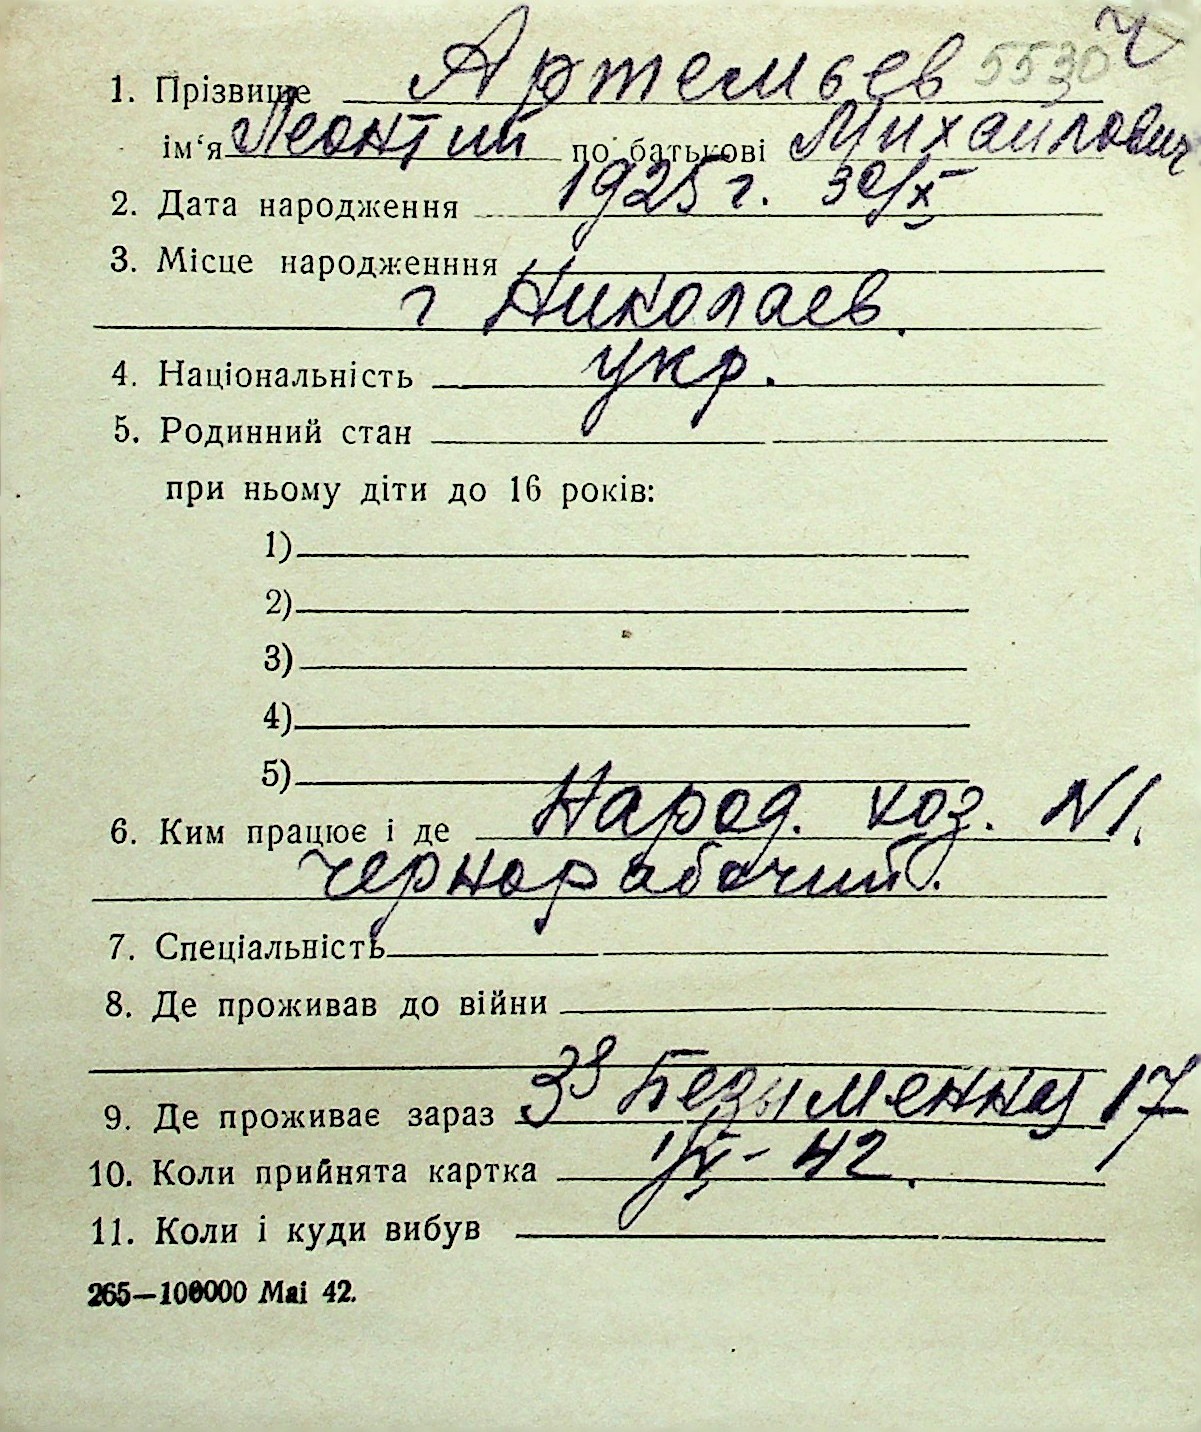 ч
1. Прізвище Артемьев 5530
ім‘я Леонтий по батькові Михайлович
2. Дата народження 1925 г. 30/X
3. Місце народженння
г Николаев.
4. Національність укр.
5. Родинний стан
при ньому діти до 16 років:
1)
2)
3)
4)
5)
6. Ким працює і де Народ. хоз. N1.
чернорабочий.
7. Спеціальність
8. Де проживав до війни
9. Де проживає зараз 3я Безыменная 17
10. Коли прийнята картка - 42.
11. Коли і куди вибув
265—100000 Mai 42.